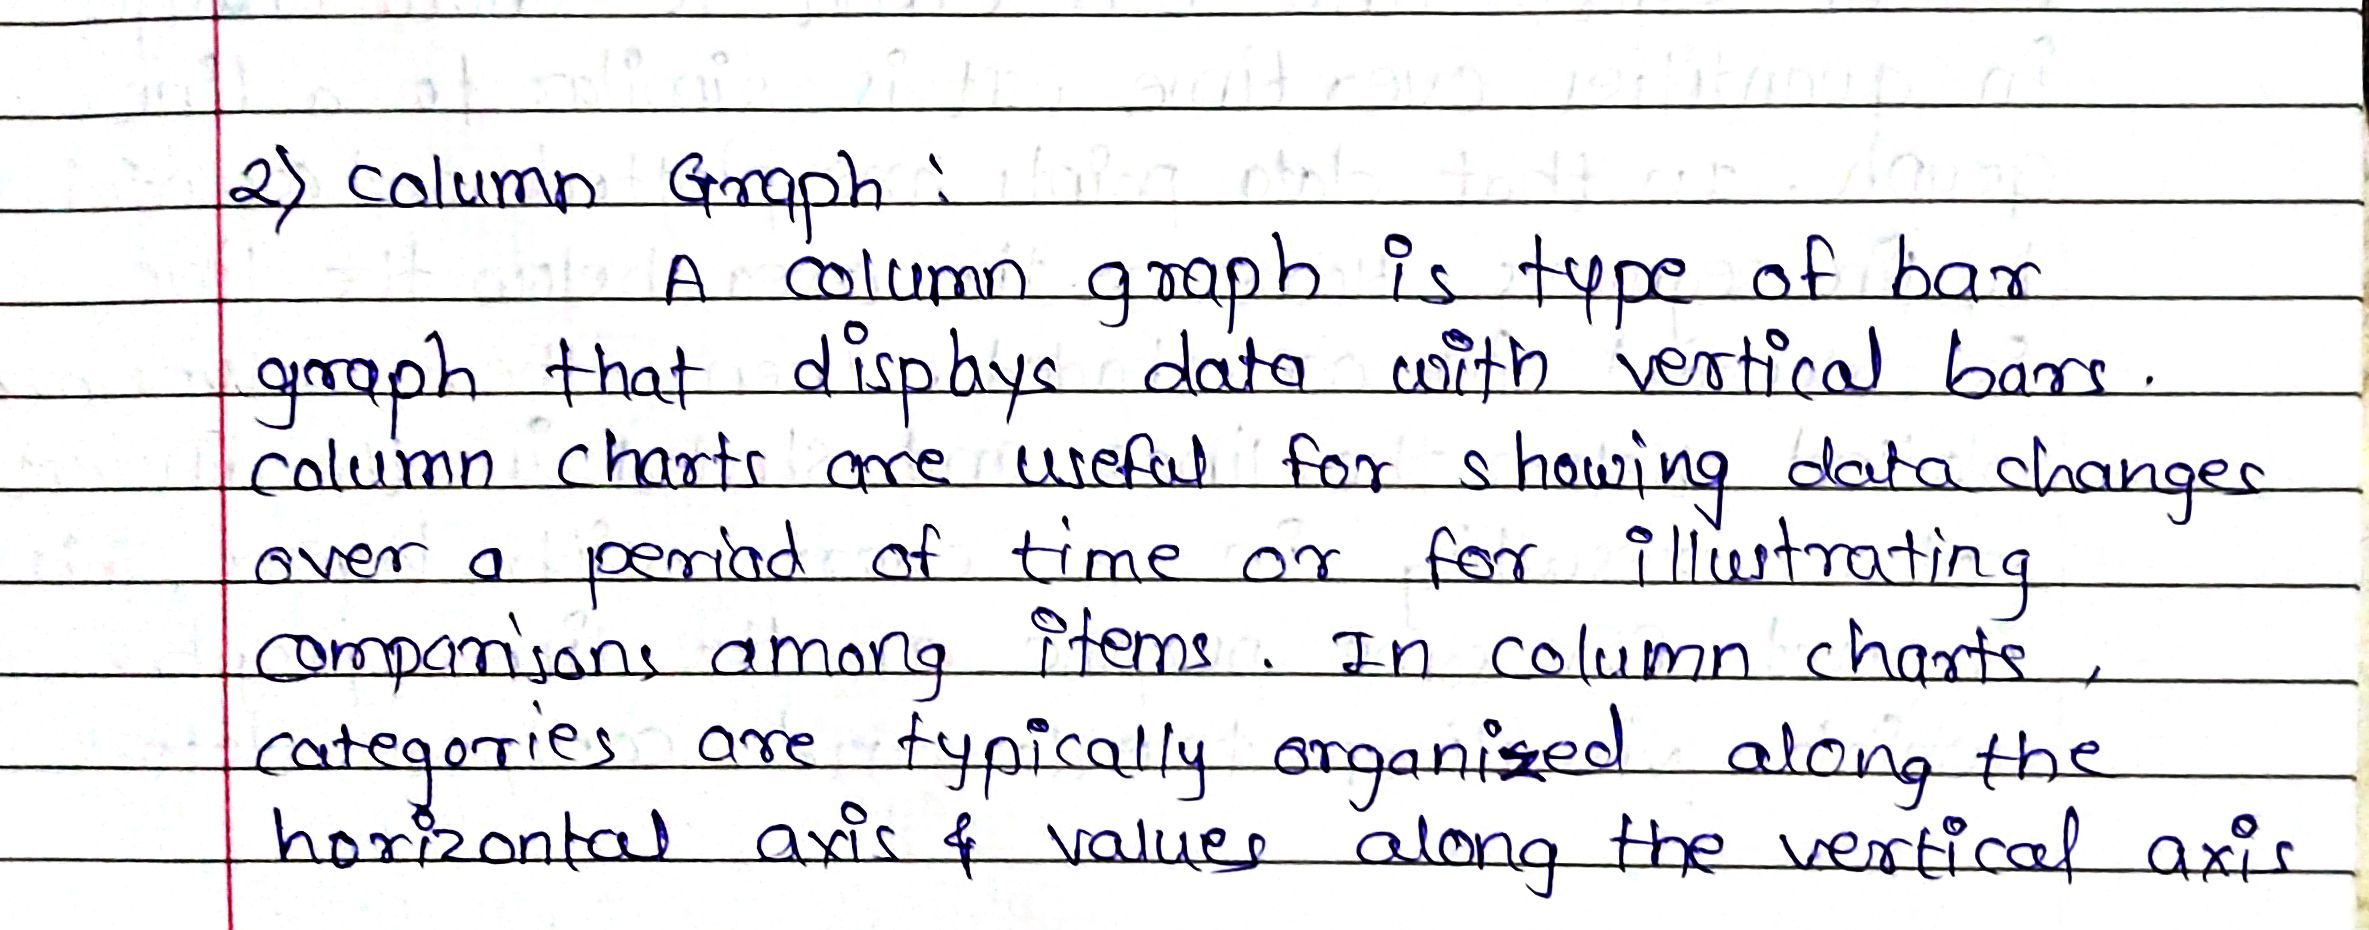 2) Column Graph :
A column graph is type of bar
graph that displays data with vertical bars.
column charts are useful for showing data changes
over a period of time or for illustrating
comparisons among items. In column charts,
categories are typically organized along the
horizontal axis & values along the vertical axis